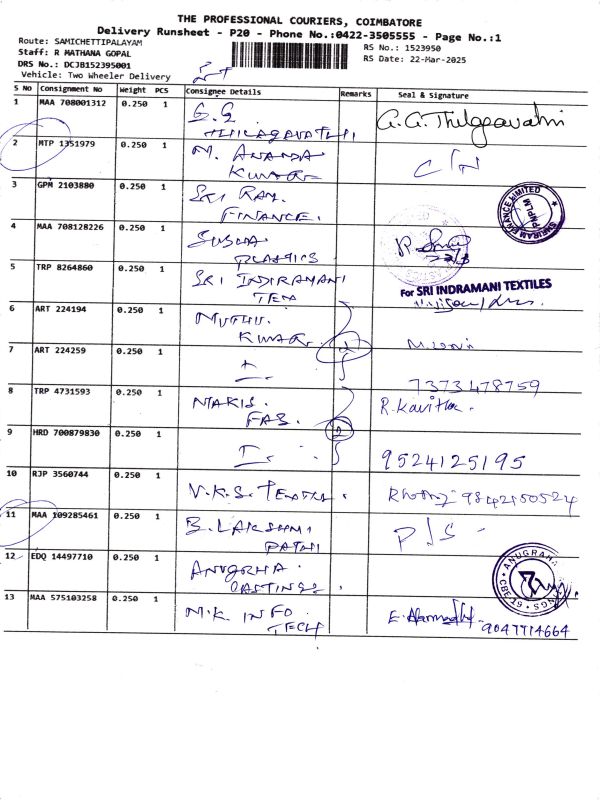 THE PROFESSIONAL COURIERS, COIMBATORE
Delivery Runsheet - P20 - Phone No.:0422-3505555 - Page No.:1
Route: SAMICHETTIPALAYAM
RS No.: 1523950
Staff: R MATHANA GOPAL
RS Date: 22-Mar-2025
DRS No.: DCJB152395001
Vehicle: Two Wheeler Delivery
S No Consignment No Weight PCS Consignee Details Remarks Seal & Signature
1 MAA 708001312 0.250 1 G.G. G.G. Thilgeavathi
THILAGAVATHI
2 MTP 1351979 0.250 1 M. ANANDA C/N
KUMAR
3 GPM 2103880 0.250 1 SRI RAM SHRIRAM FINANCE LIMITED
FINANCE. PNPLM
4 MAA 708128226 0.250 1 SUSHA
PLASTICS
5 TRP 8264860 0.250 1 SRI INDIRAMANI For SRI INDRAMANI TEXTILES
TEX
6 ART 224194 0.250 1 MUTHU.
KUMAR 2
7 ART 224259 0.250 1
7373478759
8 TRP 4731593 0.250 1 R. Kavitha.
FAS. 2
9 HRD 700879830 0.250 1 9524125195
10 RJP 3560744 0.250 1 V.K.S. TEXTILE. 9842150524
11 MAA 109285461 0.250 1 B. LAKSHMI P/S
PATHI
12 EDQ 14497710 0.250 1 ANUGRHA ANUGRAHA CASTINGS
CASTINGS. CBE-19
13 MAA 575103258 0.250 1 M.K INFO
TECH 9047714664